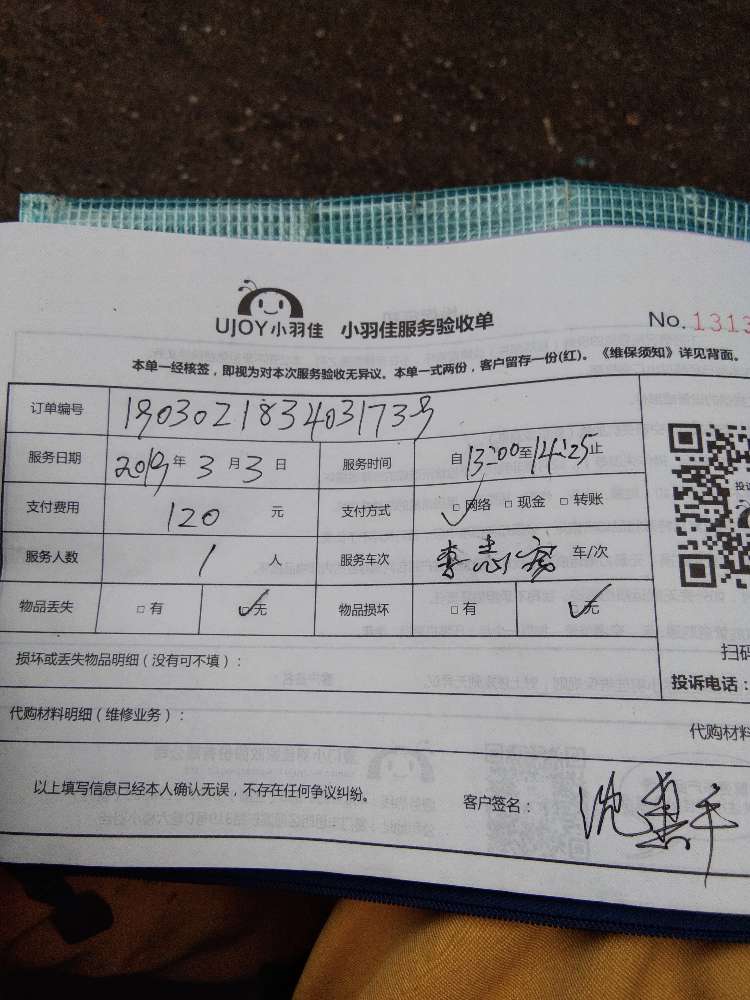 UJOY小羽佳 小羽佳服务验收单 No.1313
本单一经核签，即视为对本次服务验收无异议。本单一式两份，客户留存一份(红)。《维保须知》详见背面。
订单编号 19030218340317号
服务日期 2019年3月3日 服务时间 自13:00至14:25止
支付费用 120 元 支付方式 □网络 □现金 □转账
服务人数 1 人 服务车次 李志 车/次
物品丢失 □有 □无 物品损坏 □有 □无
损坏或丢失物品明细（没有可不填）：
扫码
投诉电话：
代购材料明细（维修业务）：
代购材料
以上填写信息已经本人确认无误，不存在任何争议纠纷。 客户签名： 沈